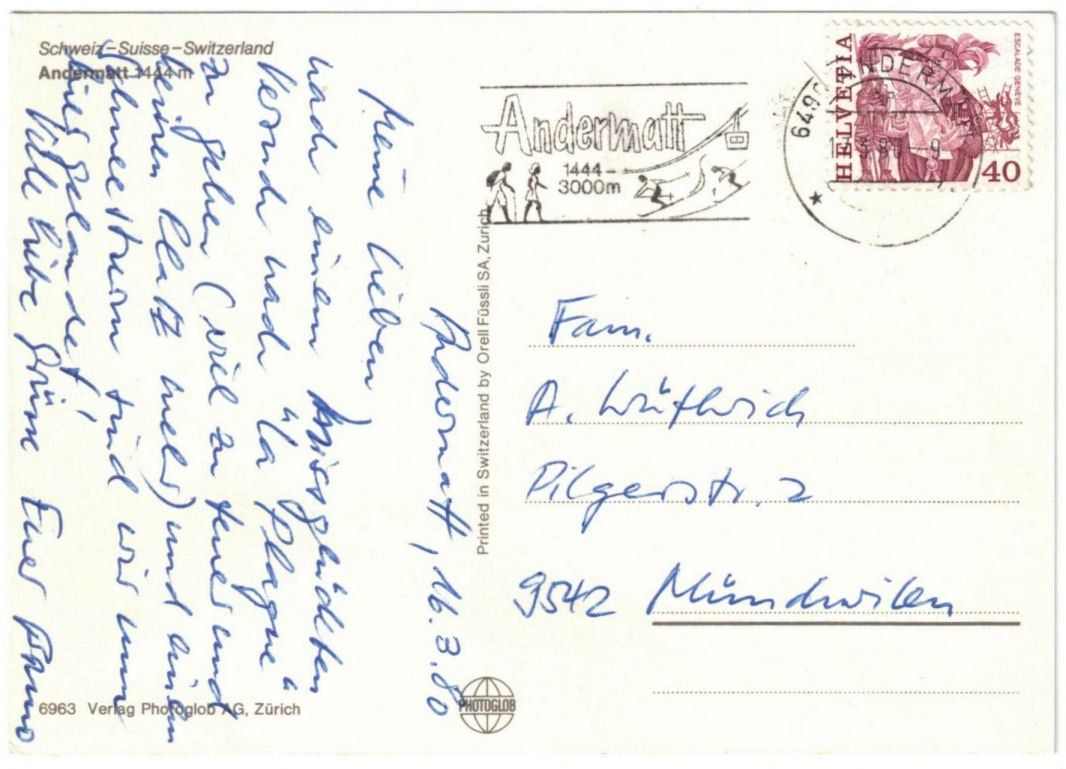 Schweiz–Suisse–Switzerland
Andermatt 1444 m
Andermatt, 16.3.80
Meine Lieben,
nach einem missglückten
Versuch nach "La Plagne"
zu gehen (viel zu teuer und
keinen Platz mehr) und einem
Schneesturm sind wir nun
hier gelandet!
Viele liebe Grüsse Euer
6963 Verlag Photoglob AG, Zürich
Printed in Switzerland by Orell Füssli SA, Zürich
PHOTOGLOB
Andermatt
1444 –
3000m
6490 ANDERMATT
HELVETIA
ESCALADE GENÈVE
40
Fam.
A. Wüthrich
Pilgerstr. 2
9542 Münchwilen